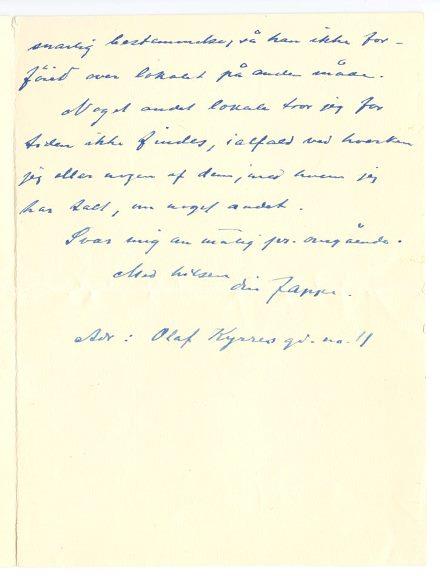 snarlig bestemmelse, så han ikke for-
föier over lokalet på anden måde.
Noget andet lokale tror jeg for
tiden ikke findes, ialfald ved hverken
jeg eller nogen af dem, med hvem jeg
har talt, om noget andet.
Svar mig an mulig pr. omgående.
Med hilsen
din Jappe.
Adr: Olaf Kyrres gd. no. 11